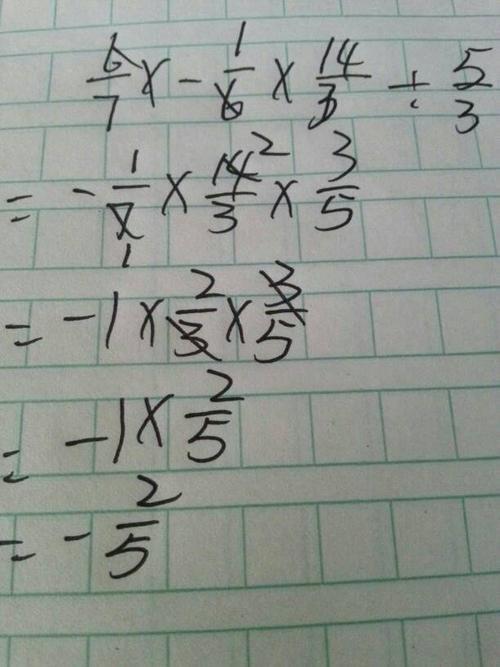 6/7 × - 1/6 × 14/3 ÷ 5/3
= - 1/7 × 14/3 × 3/5
1 2
= -1 × 2/3 × 3/5
= -1 × 2/5
= - 2/5